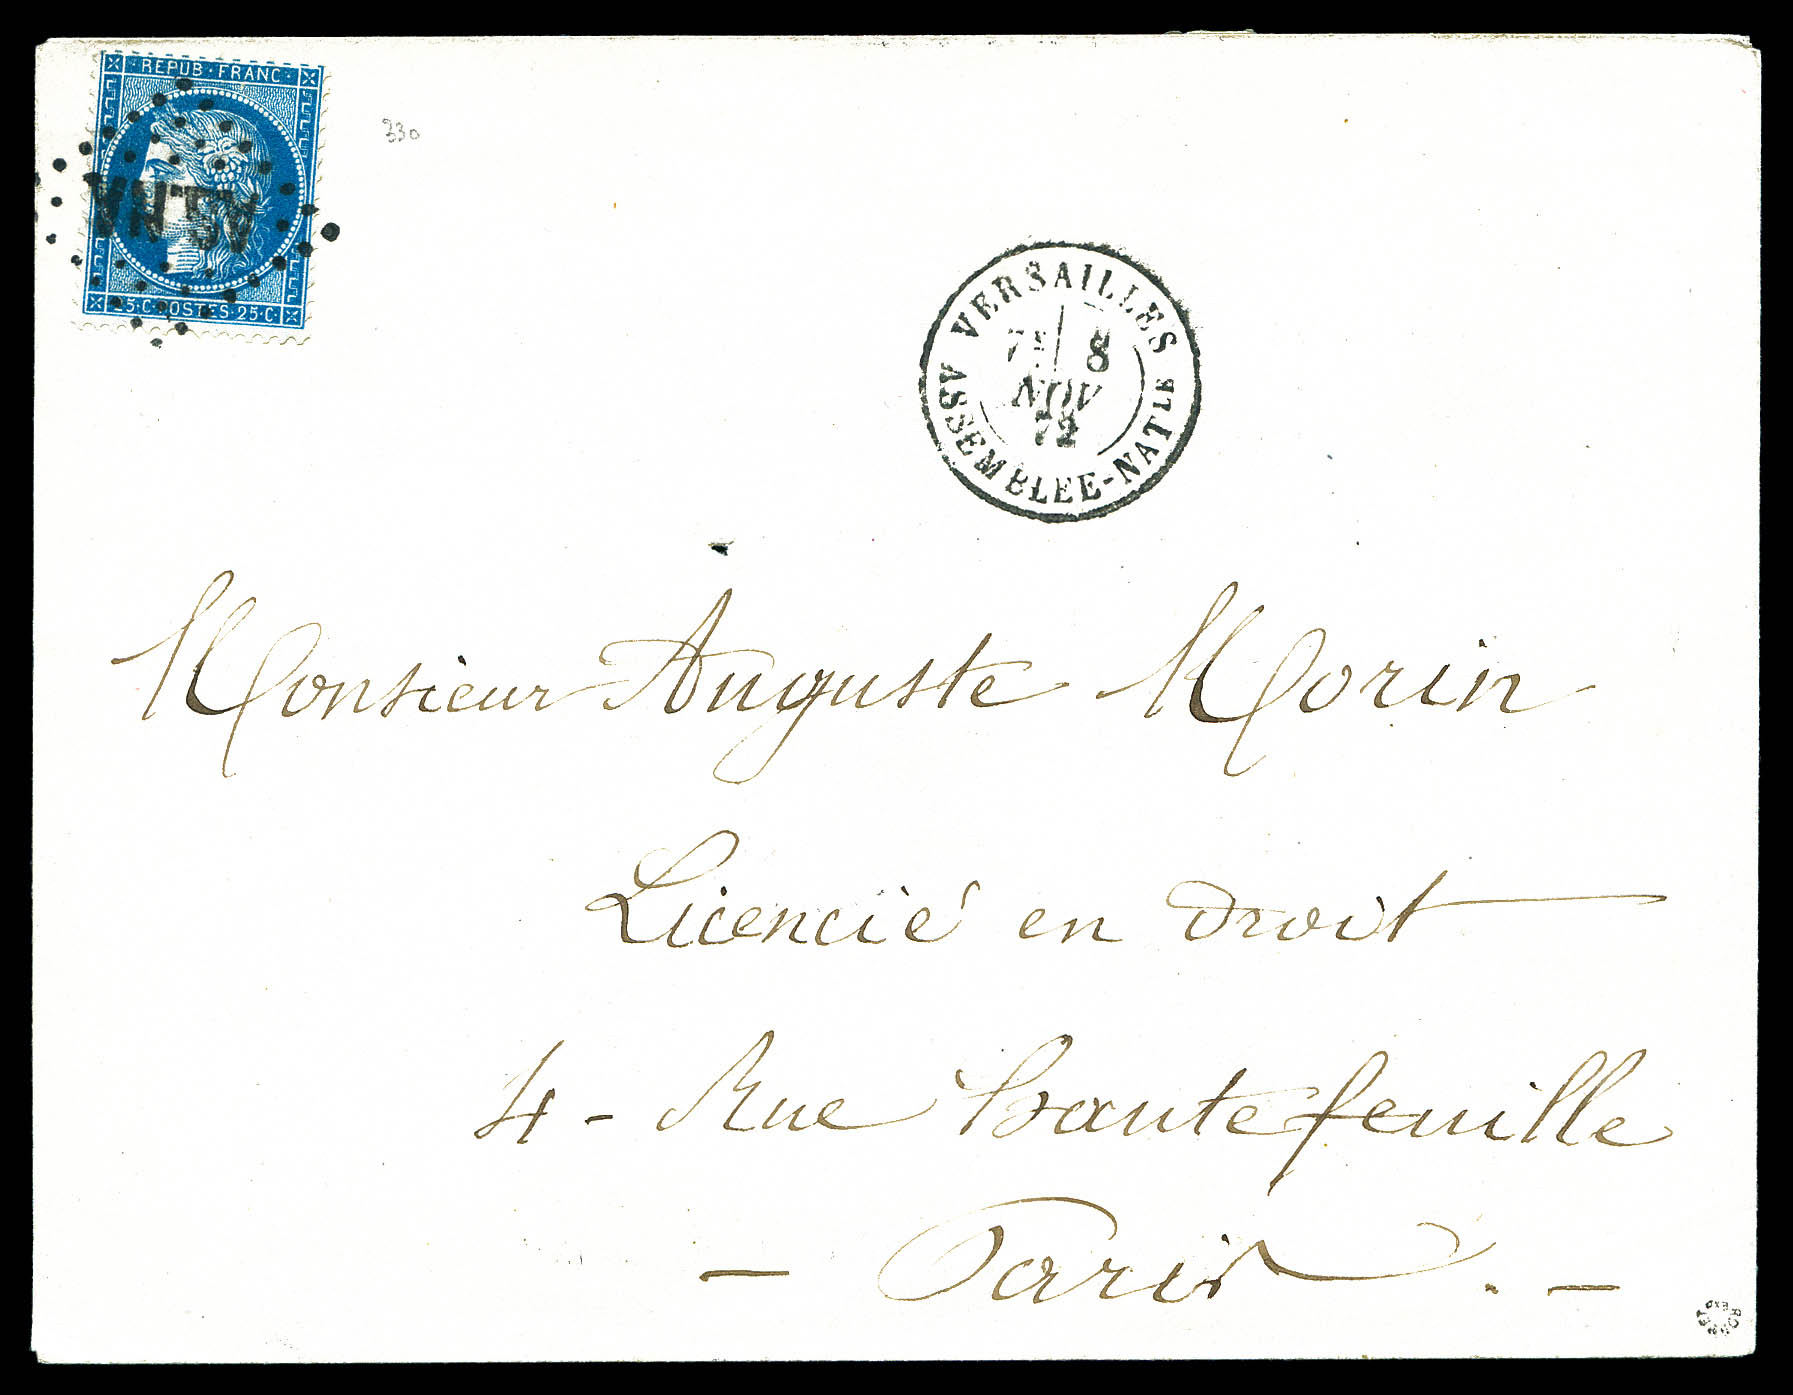 REPUB·FRANC·
25·C·POSTES·25·C·
330
VERSAILLES
8
NOV
72
ASSEMBLEE-NATLE
Monsieur Auguste Morin
Licencié en droit
4 - Rue hautefeuille
- Paris. -